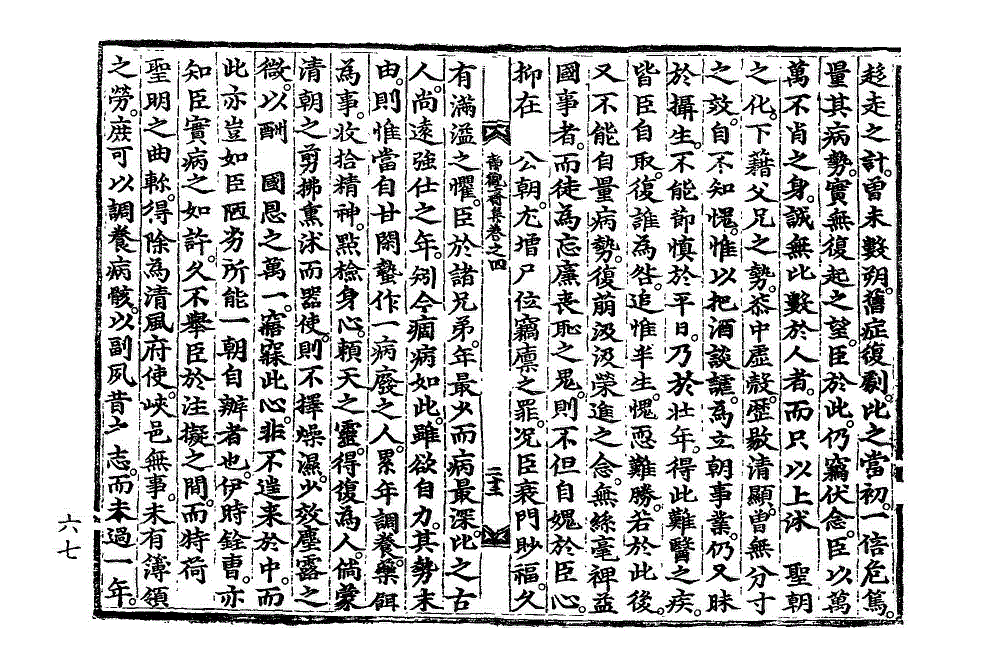 趍走之計。曾未數朔。舊症復劇。比之當初。一倍危篤。
量其病勢。實無復起之望。臣於此。仍竊伏念。臣以萬
萬不肖之身。誠無比數於人者。而只以上沐 聖朝
之化。下藉父兄之勢。忝中虛殼。歷敭清顯。曾無分寸
之效。自不知愧。惟以把酒談謔。爲立朝事業。仍又昧
於攝生。不能節愼於平日。乃於壯年。得此難醫之疾。
皆臣自取。復誰爲咎。追惟半生。愧恧難勝。若於此後。
又不能自量病勢。復前汲汲榮進之念。無絲毫裨益
國事者。而徒爲忘廉喪恥之鬼。則不但自媿於臣心。
抑在 公朝。尤增尸位竊廩之罪。况臣衰門眇福。久
卷之四
二十三
有滿溢之懼。臣於諸兄弟。年最少而病最深。比之古
人。尚遠強仕之年。矧今痼病如此。雖欲自力。其勢末
由。則惟當自甘閑蟄。作一病廢之人。累年調養。藥餌
爲事。收拾精神。點檢身心。賴天之靈。得復爲人。倘蒙
清朝之剪拂熏沐而器使。則不擇燥濕。少效塵露之
微。以酬 國恩之萬一。寤寐此心。非不遄來於中。而
此亦豈如臣陋劣所能一朝自辦者也。伊時銓曹。亦
知臣實病之如許。久不擧臣於注擬之間。而特荷
聖明之曲軫。得除爲清風府使。峽邑無事。未有簿領
之勞。庶可以調養病骸。以副夙昔之志。而未過一年。
六七